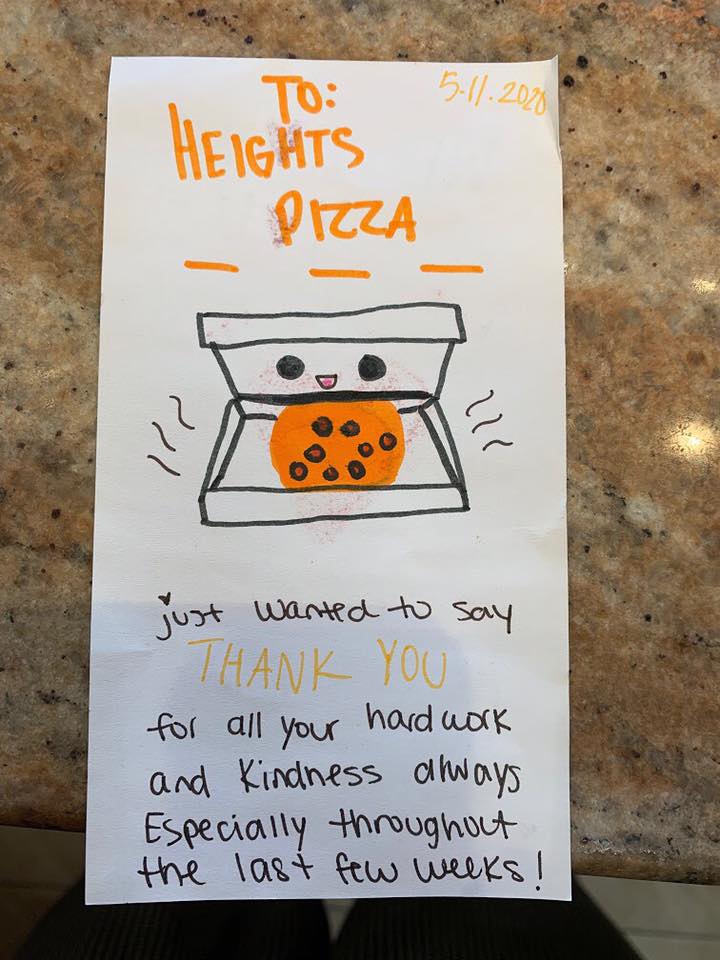 5.11.2020
TO:
HEIGHTS
PIZZA
just wanted to say
THANK YOU
for all your hard work
and Kindness always
Especially throughout
the last few weeks!